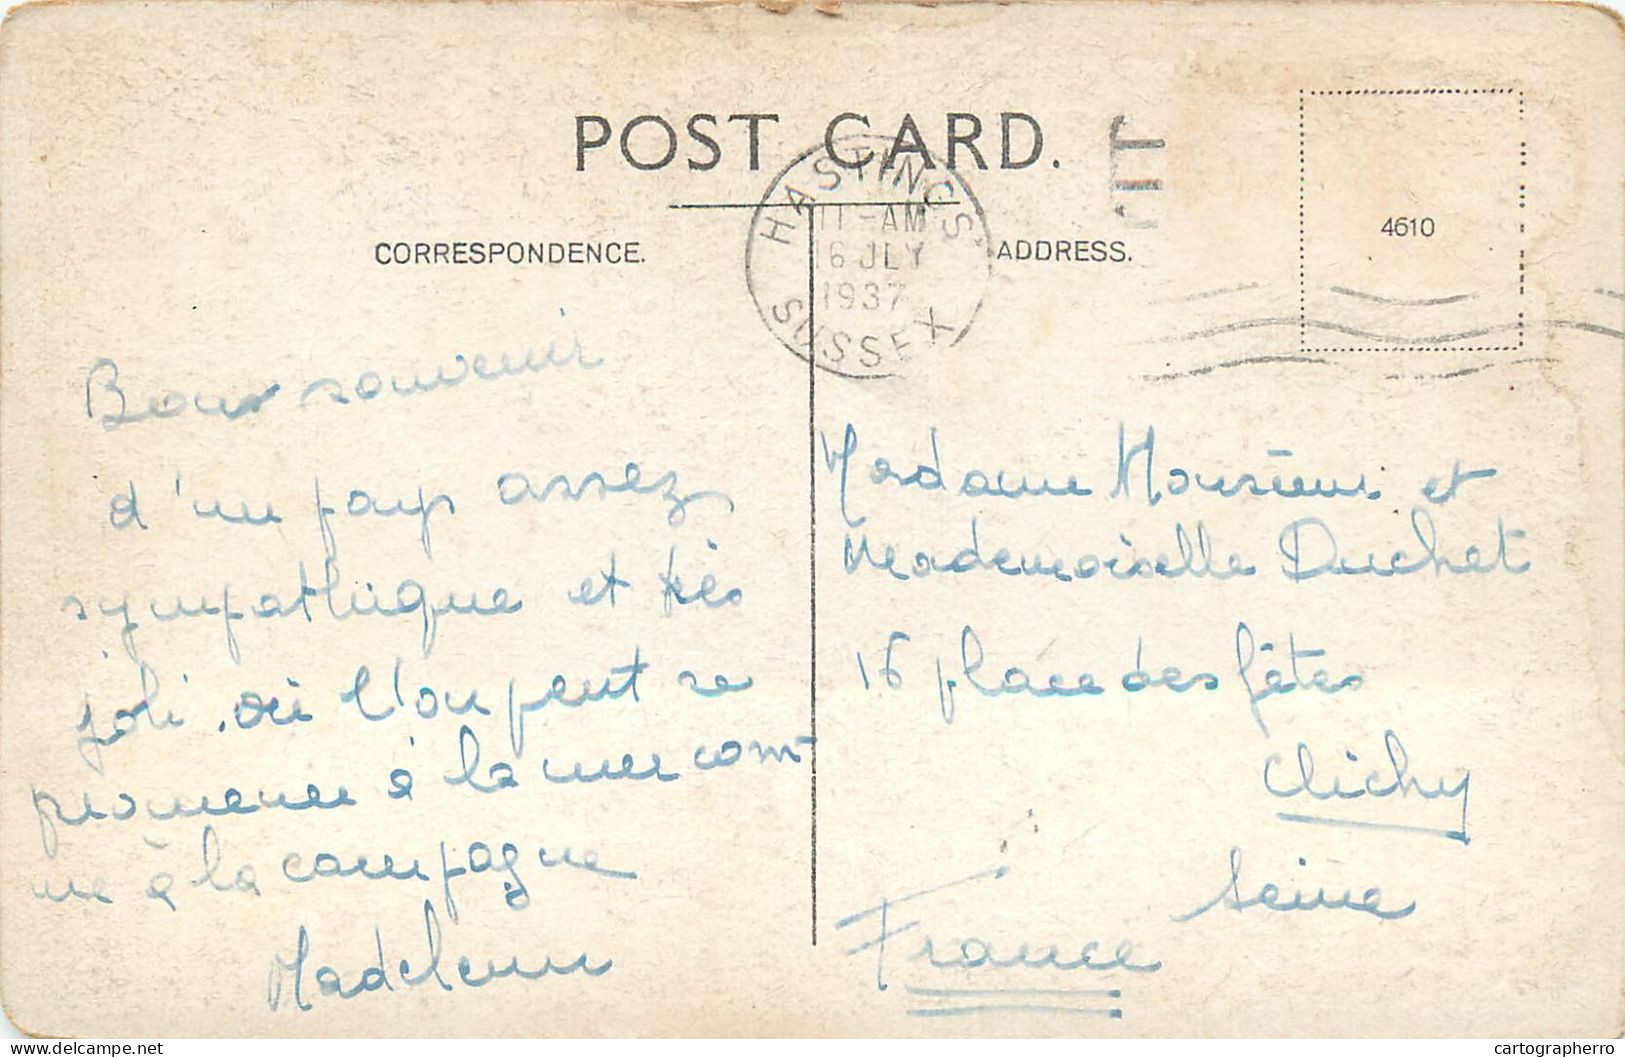 POST CARD.
HASTINGS
11-AM
16 JLY
1937
SUSSEX
4610
CORRESPONDENCE.
ADDRESS.
Bon souvenir
d'un pays assez
sympathique et très
joli, où l'on peut se
promener à la mer com-
me à la campagne
Madeleine
Madame Monsieur et
Mademoiselle Duchet
16 place des fêtes
Clichy
Seine
France
delcampe.net
cartographerro